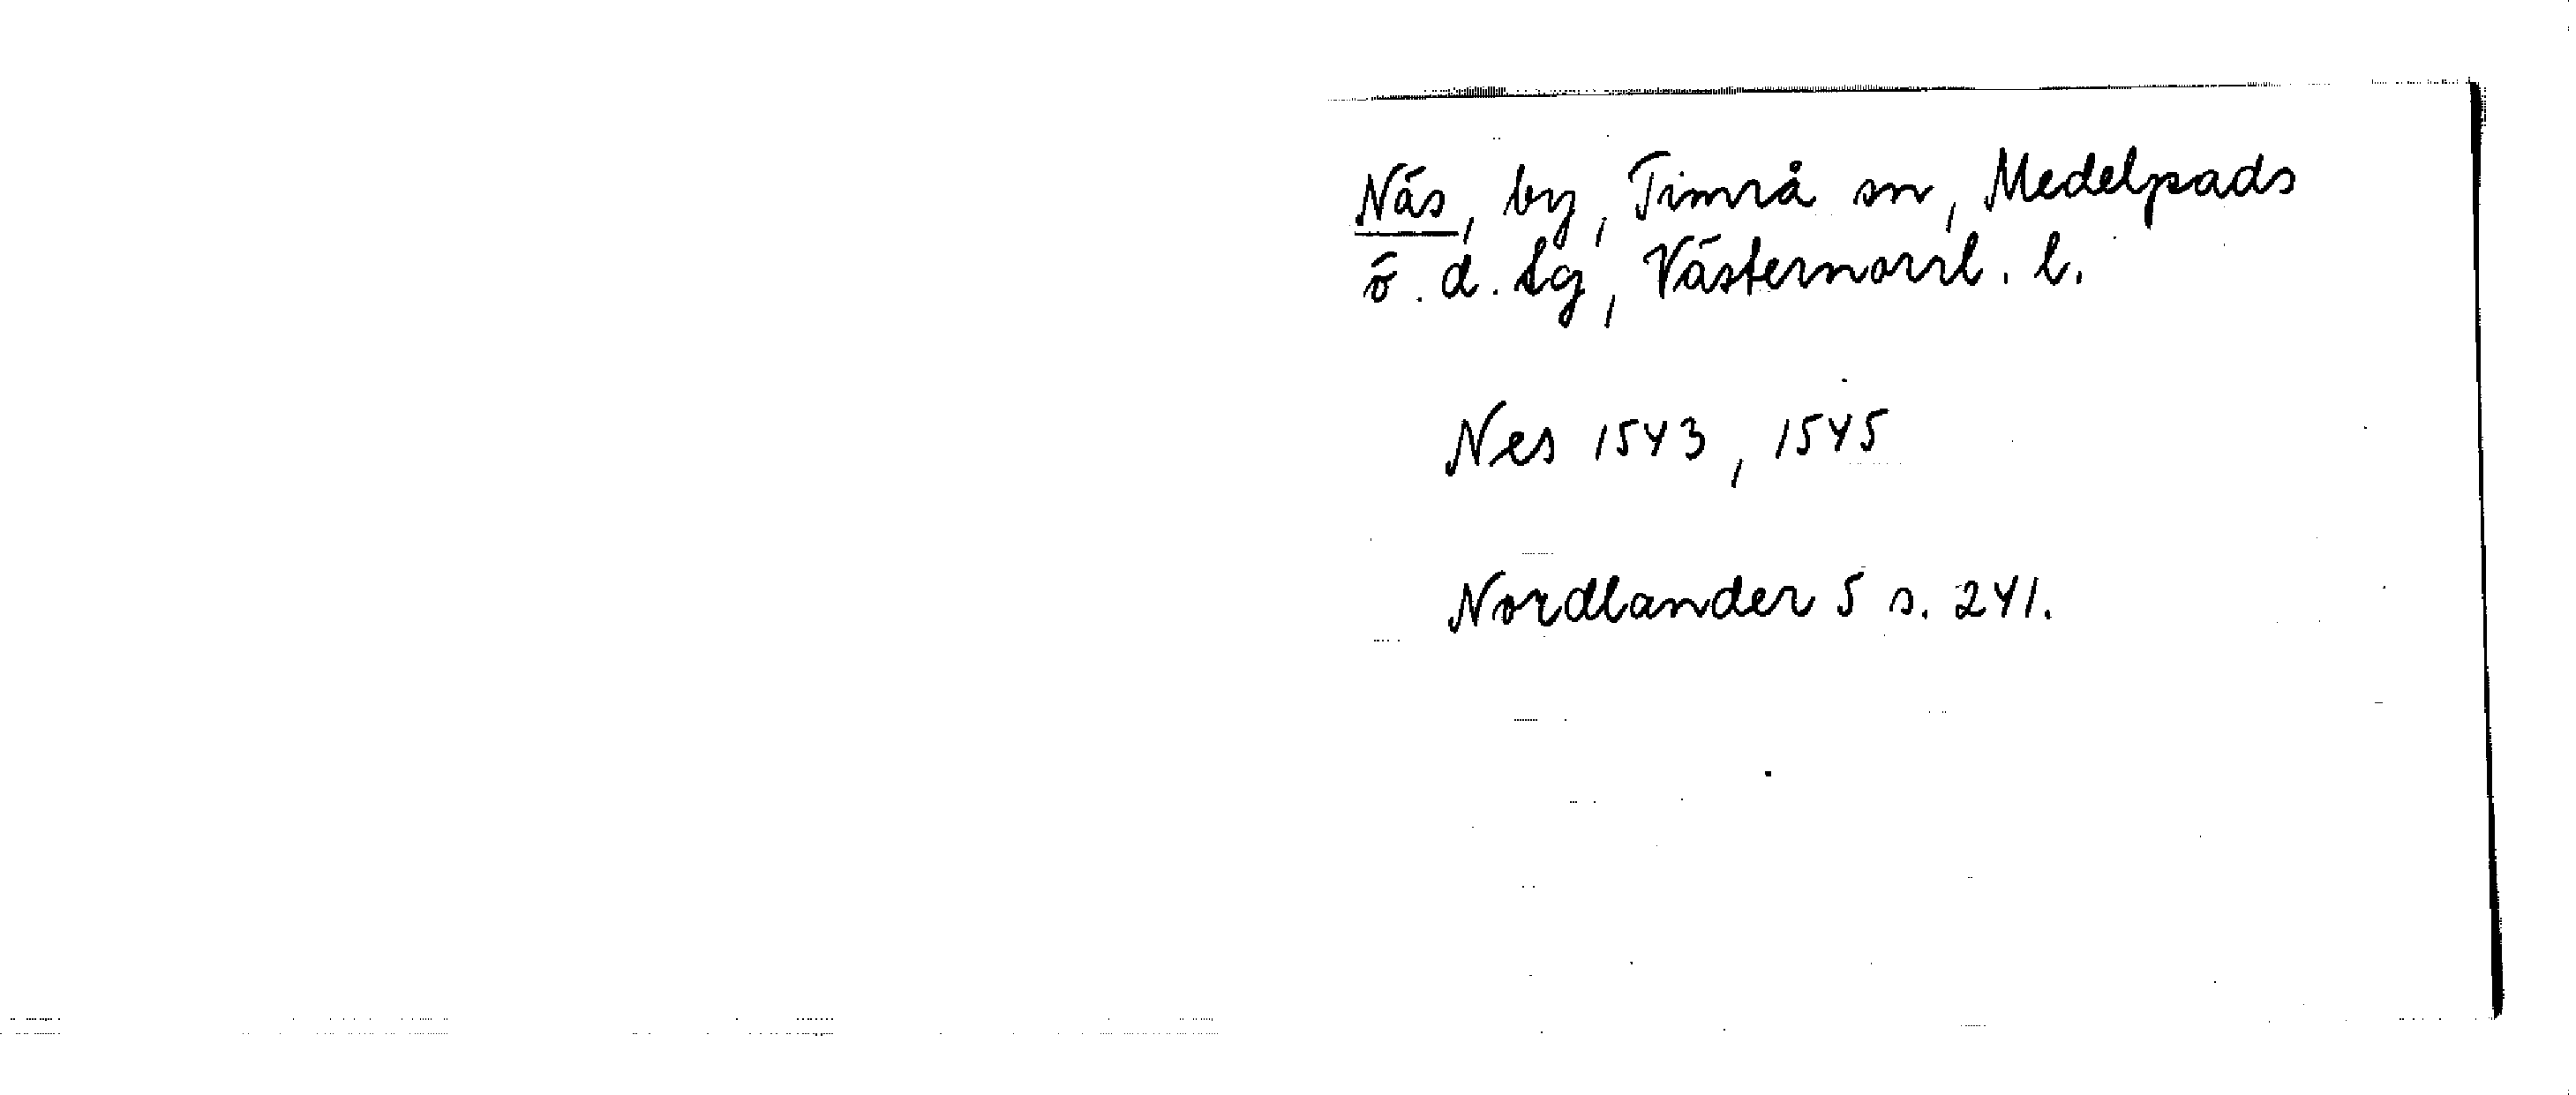 Näs, by, Timrå sn, Medelpads
ö. d. tg, Västernorrl. l.
Nes 1543, 1545
Nordlander 5 s. 241.